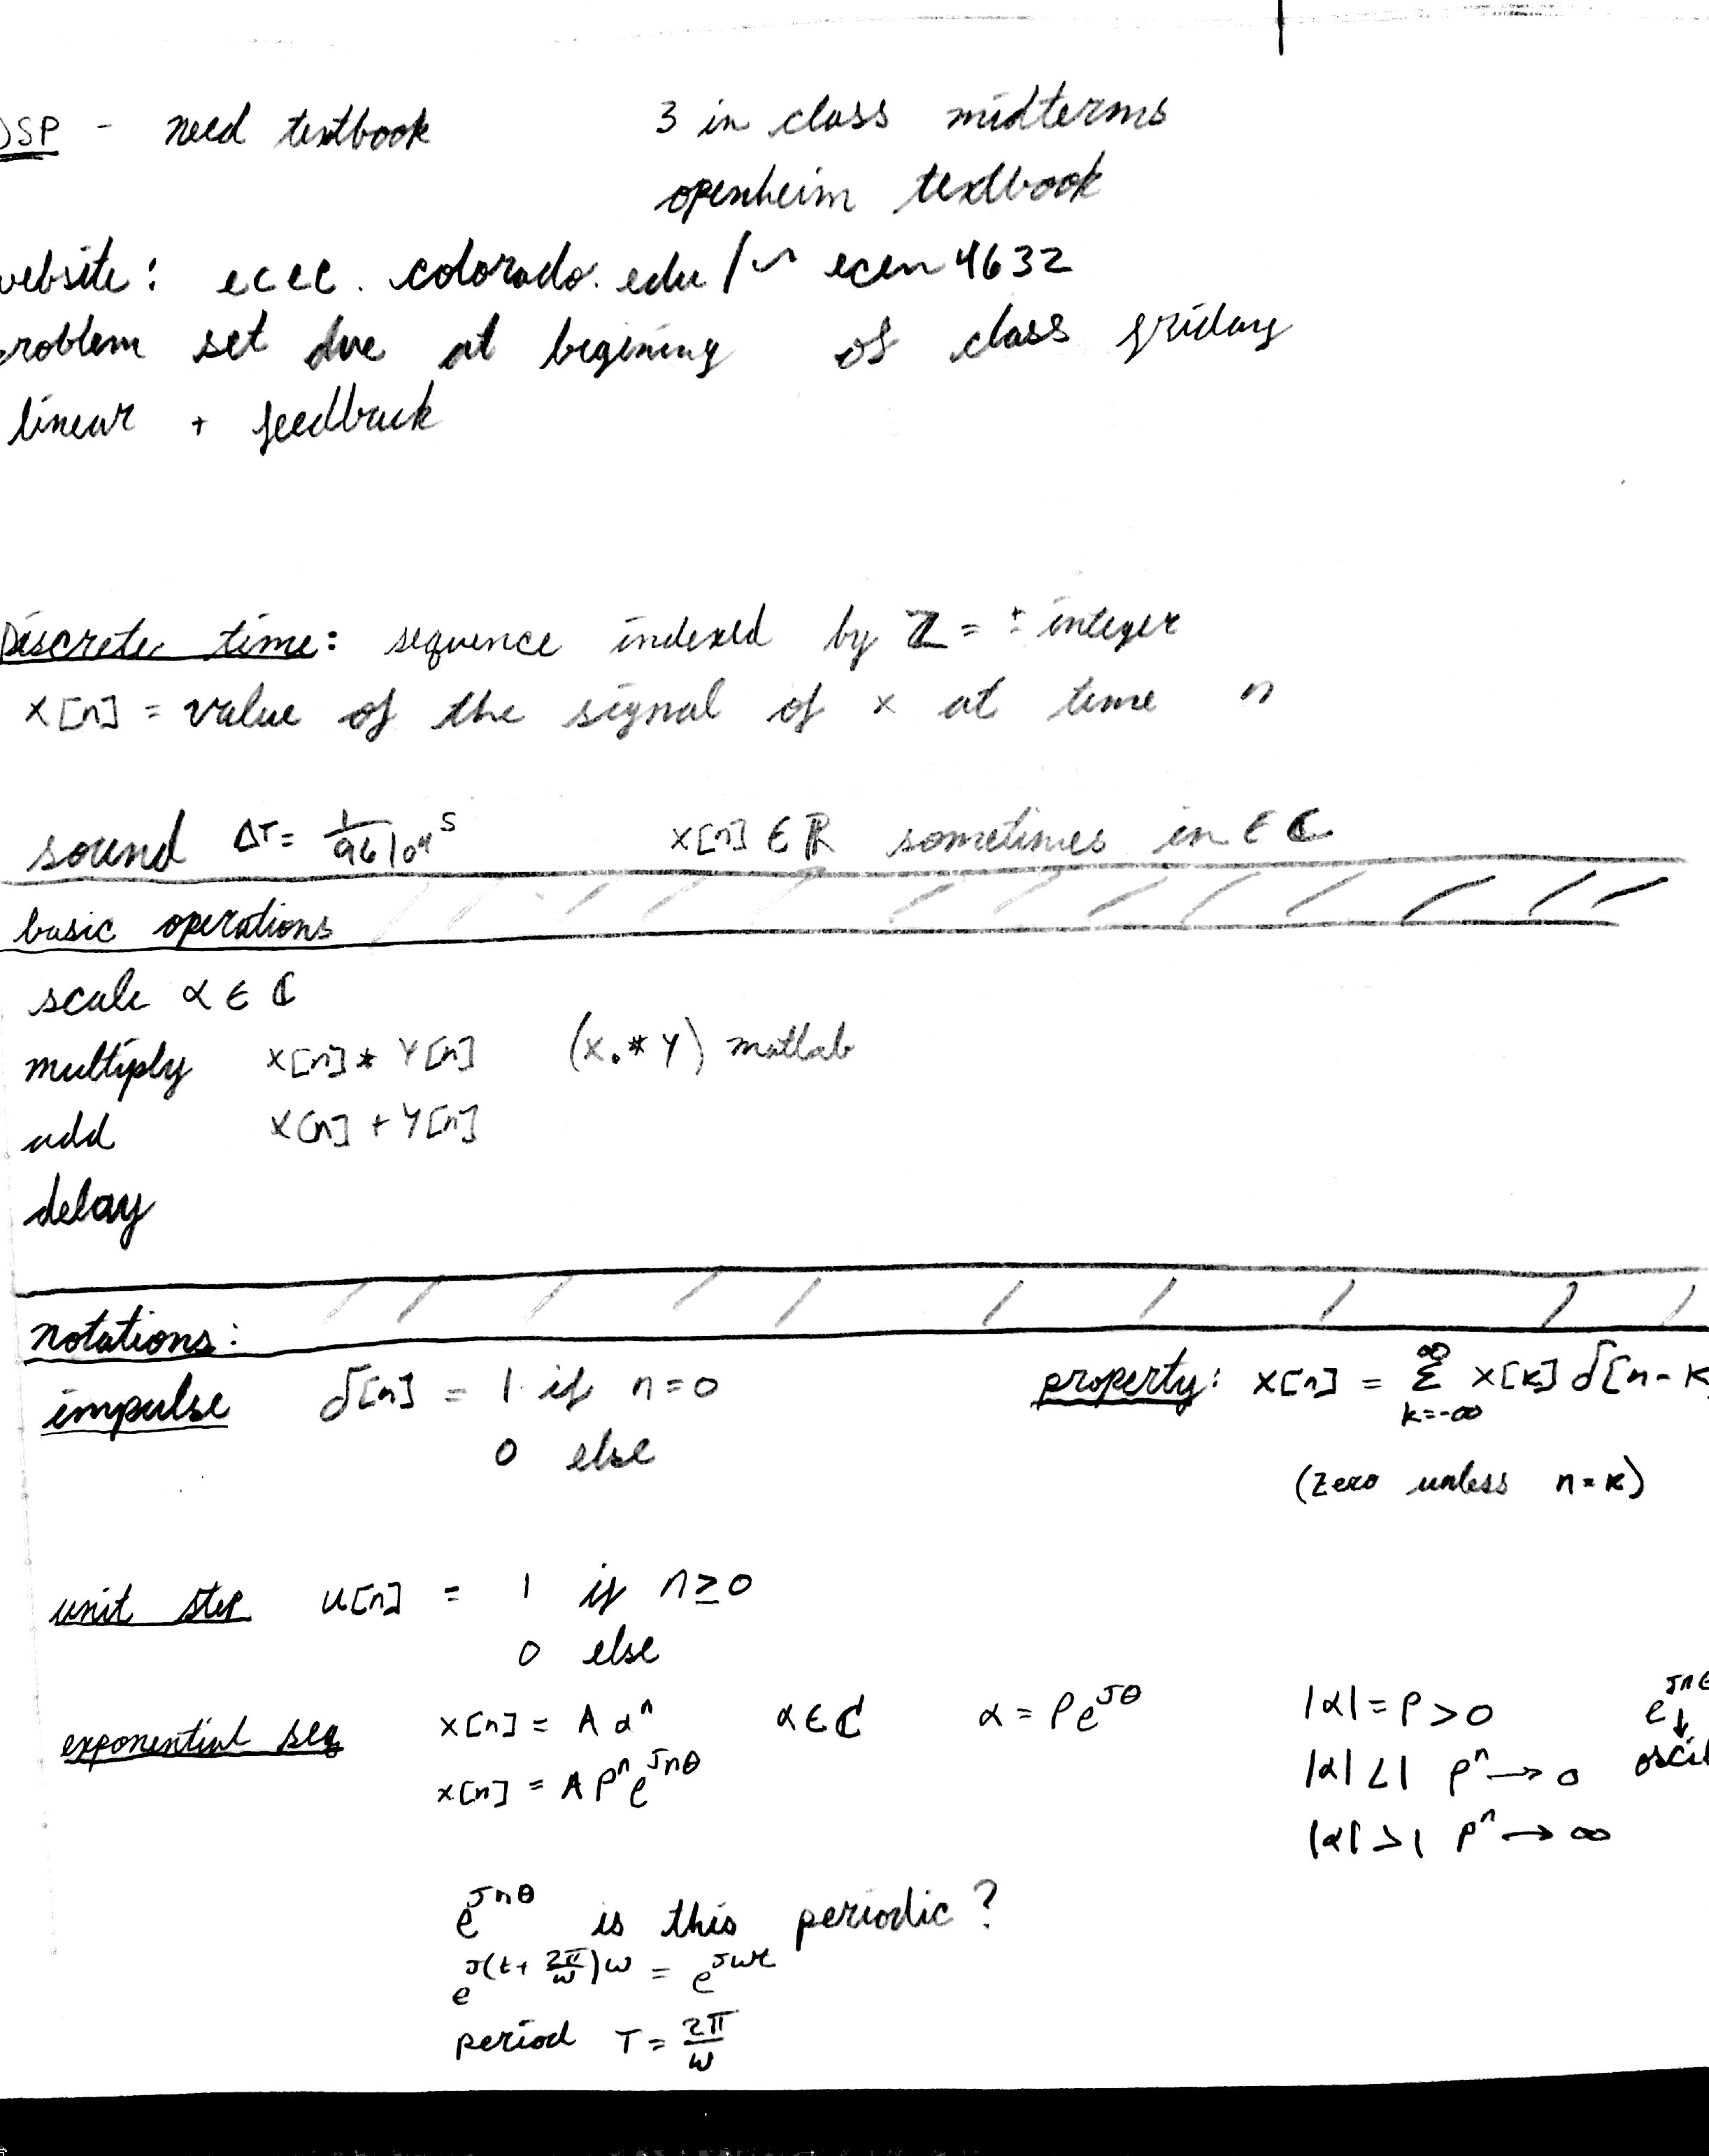 DSP - need textbook 3 in class midterms
openheim textbook
website: ecee.colorado.edu/~ecen4632
problem set due at begining of class friday
linear + feedback
Discrete time: sequence indexed by ℤ = ± integer
x[n] = value of the signal of x at time n
sound ΔT = x[n] ∈ ℝ sometimes in ∈ ℂ
basic operations
scale α ∈ ℂ
multiply x[n] * Y[n] (x.*Y) matlab
add x[n] + Y[n]
delay
notations:
impulse δ[n] = 1 if n=0 property: x[n] = Σ_{k=-∞}^{∞} x[k] δ[n-k
0 else
(zero unless n=k)
unit step u[n] = 1 if n≥0
0 else
exponential seq x[n] = A α^n α∈ℂ α = ρe^{Jθ} |α| = ρ > 0 e^{Jnθ
x[n] = A ρ^n e^{Jnθ} |α| < 1 ρ^n → 0 ↓ oscil
|α| > 1 ρ^n → ∞
e^{Jnθ} is this periodic?
e^{J(t + 2π/ω)ω} = e^{Jωt}
period T = 2π/ω